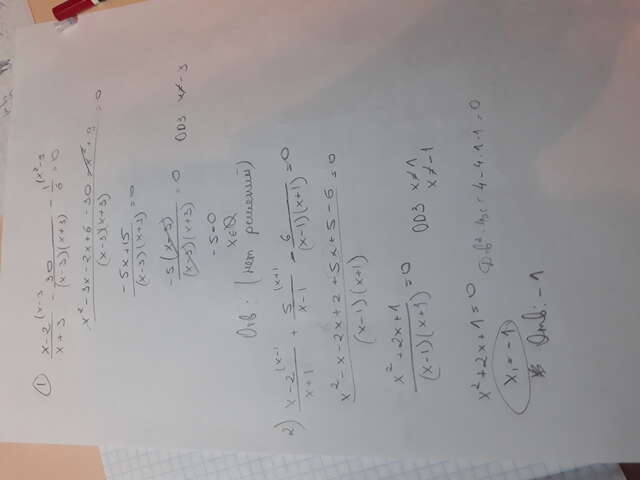 1 (x-2)/(x+3) (x-3 - 30/((x-3)(x+3)) - 1/6 (x²-9 = 0
(x² - 3x - 2x + 6 - 30 - x² + 9)/((x-3)(x+3)) = 0
(-5x + 15)/((x-3)(x+3)) = 0
(-5(x-3))/((x-3)(x+3)) = 0 ОДЗ x ≠ -3
-5=0
Отв: (нет решений)
2) (x-2)/(x+1) (x-1 + 5/(x-1) (x+1 - 6/((x-1)(x+1)) = 0
(x² - x - 2x + 2 + 5x + 5 - 6)/((x-1)(x+1)) = 0
(x² + 2x + 1)/((x-1)(x+1)) = 0 ОДЗ x ≠ 1
x ≠ -1
x² + 2x + 1 = 0 D = b² - 4ac = 4 - 4·1·1 = 0
x₁ = -1
Отв: -1